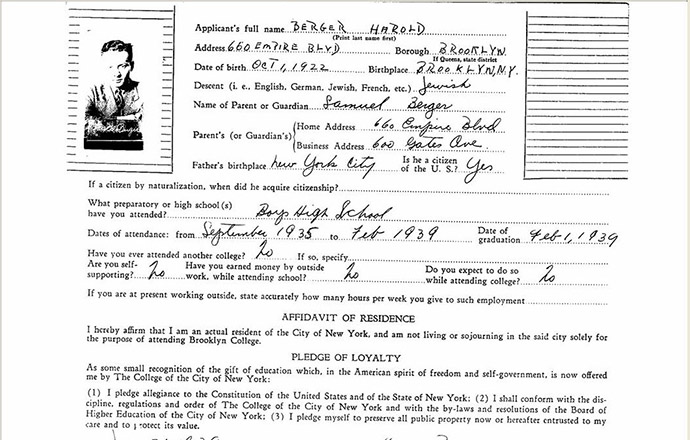 Applicant's full name BERGER HAROLD
(Print last name first)
Address 660 EMPIRE BLVD Borough BROOKLYN
If Queens, state district
Date of birth OCT 1, 1922 Birthplace BROOKLYN, N.Y.
Descent (i. e., English, German, Jewish, French, etc.) Jewish
Name of Parent or Guardian Samuel Berger
Parent's (or Guardian's) Home Address 660 Empire Blvd
Business Address 600 Gates Ave.
Father's birthplace New York City Is he a citizen of the U. S.? Yes
If a citizen by naturalization, when did he acquire citizenship?
What preparatory or high school(s)
have you attended? Boys High School
Dates of attendance: from September 1935 to Feb 1939 Date of graduation Feb 1, 1939
Have you ever attended another college? No If so, specify
Are you self-supporting? No Have you earned money by outside work, while attending school? No Do you expect to do so while attending college? No
If you are at present working outside, state accurately how many hours per week you give to such employment
AFFIDAVIT OF RESIDENCE
I hereby affirm that I am an actual resident of the City of New York, and am not living or sojourning in the said city solely for
the purpose of attending Brooklyn College.
PLEDGE OF LOYALTY
As some small recognition of the gift of education which, in the American spirit of freedom and self-government, is now offered
me by The College of the City of New York:
(1) I pledge allegiance to the Constitution of the United States and of the State of New York; (2) I shall conform with the dis-
cipline, regulations and order of The College of the City of New York and with the by-laws and resolutions of the Board of
Higher Education of the City of New York; (3) I pledge myself to preserve all public property now or hereafter entrusted to my
care and to protect its value.